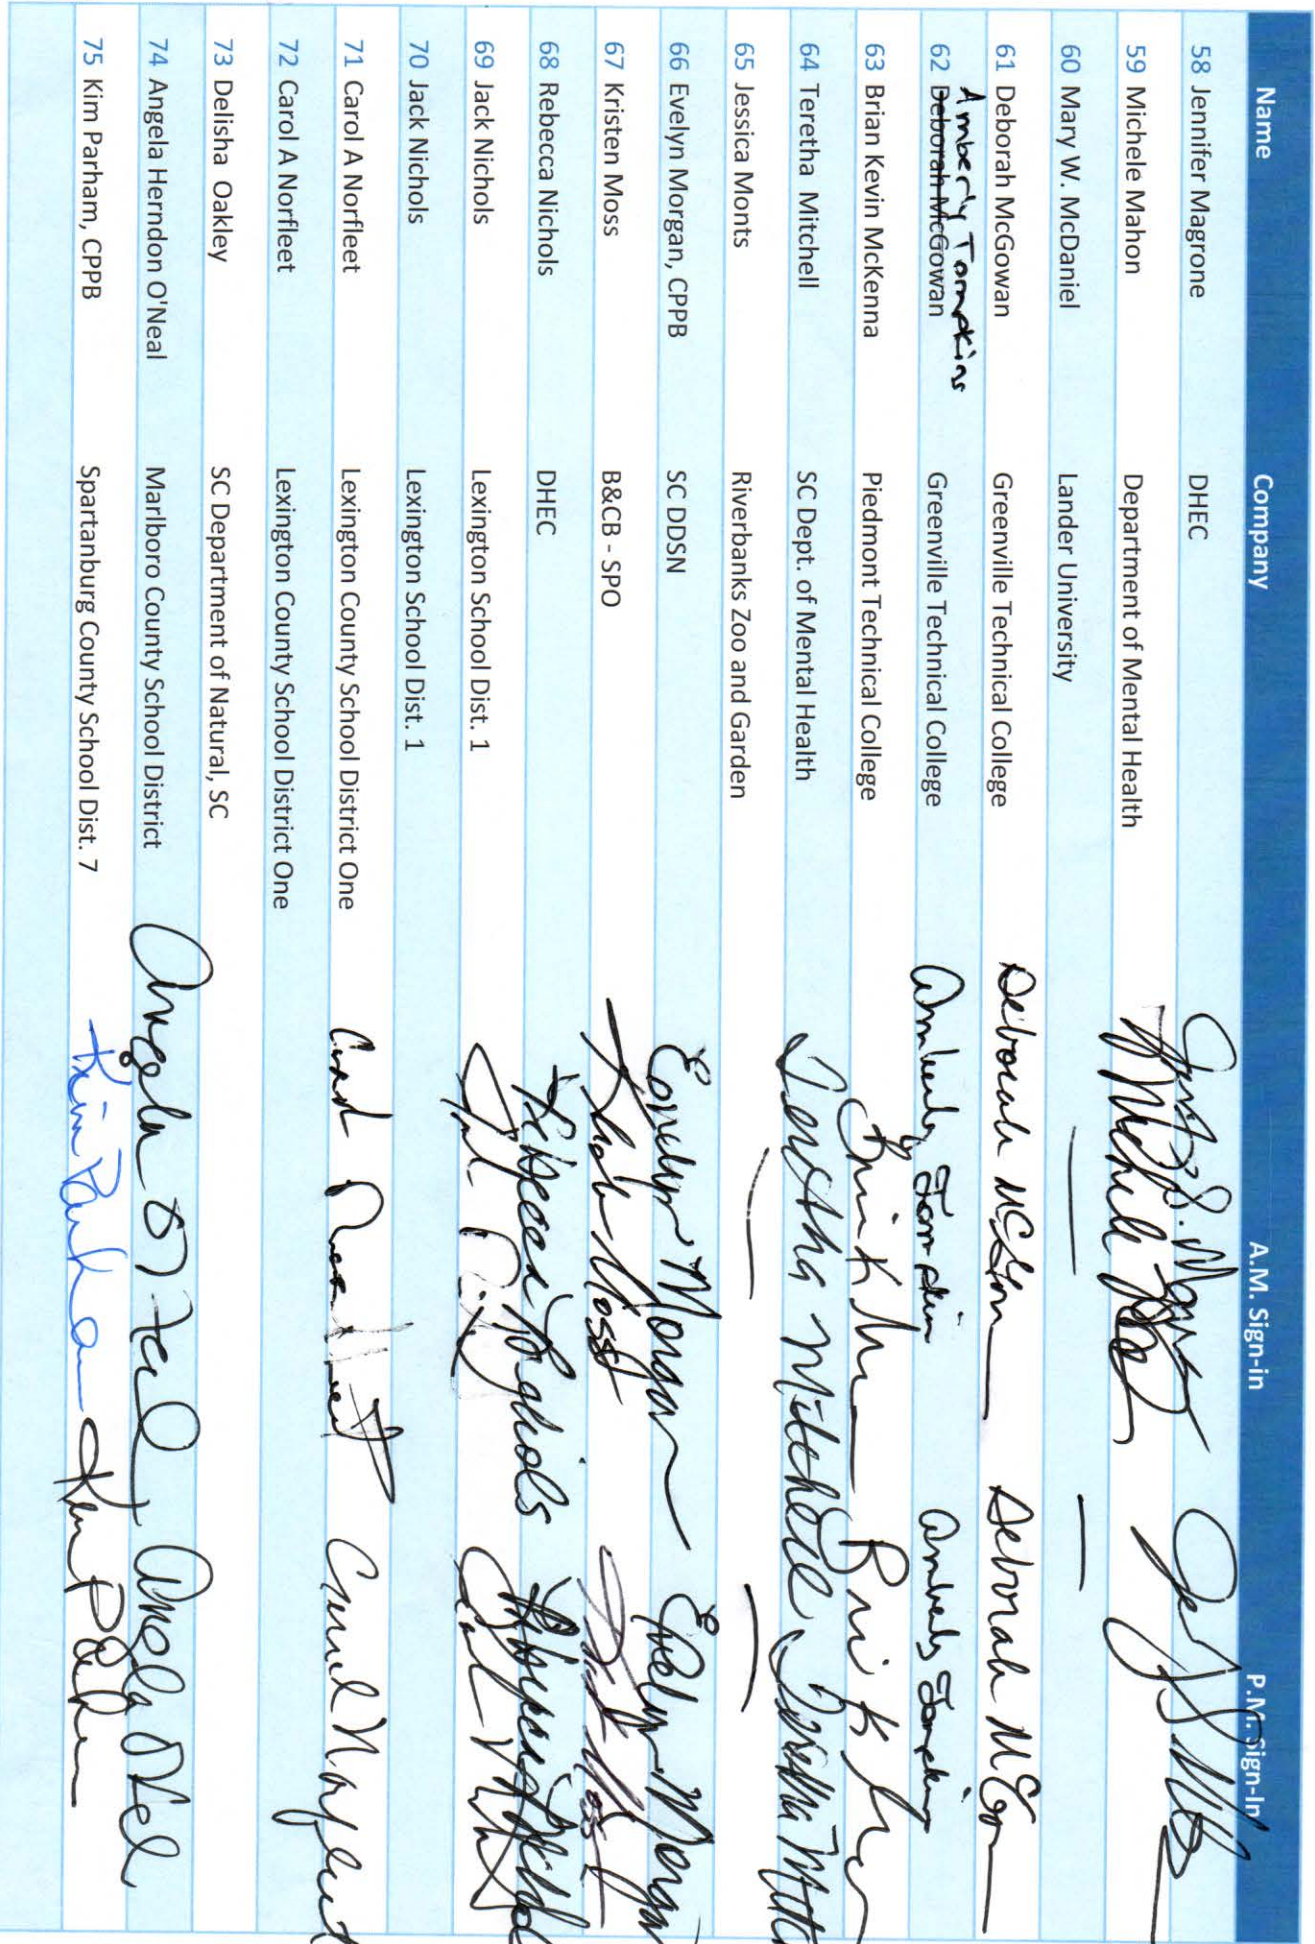 Name Company A.M. Sign-in P.M. Sign-In
58 Jennifer Magrone DHEC
59 Michele Mahon Department of Mental Health Michele
60 Mary W. McDaniel Lander University — —
61 Deborah McGowan Greenville Technical College Deborah Deborah
Amberly Tompkins
62 Deborah McGowan Greenville Technical College Amberly Tompkins Amberly Tompkins
63 Brian Kevin McKenna Piedmont Technical College Brian K Bri K
64 Teretha Mitchell SC Dept. of Mental Health Teretha Mitchell Teretha
65 Jessica Monts Riverbanks Zoo and Garden — —
66 Evelyn Morgan, CPPB SC DDSN Evelyn Morgan Evelyn Morgan
67 Kristen Moss B&CB - SPO Moss Moss
68 Rebecca Nichols DHEC Rebecca Nichols Rebecca
69 Jack Nichols Lexington School Dist. 1
70 Jack Nichols Lexington School Dist. 1
71 Carol A Norfleet Lexington County School District One Carol Norfleet Carol Norfleet
72 Carol A Norfleet Lexington County School District One
73 Delisha Oakley SC Department of Natural, SC
74 Angela Herndon O'Neal Marlboro County School District Angela O'Neal Angela O'Neal
75 Kim Parham, CPPB Spartanburg County School Dist. 7 Kim Parham Kim Parham